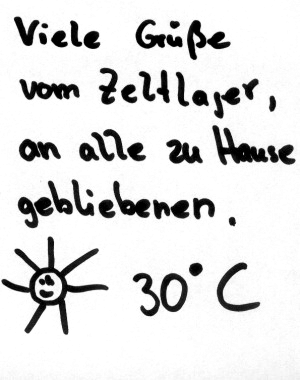 Viele Grüße
vom Zeltlager,
an alle zu Hause
gebliebenen.
30°C